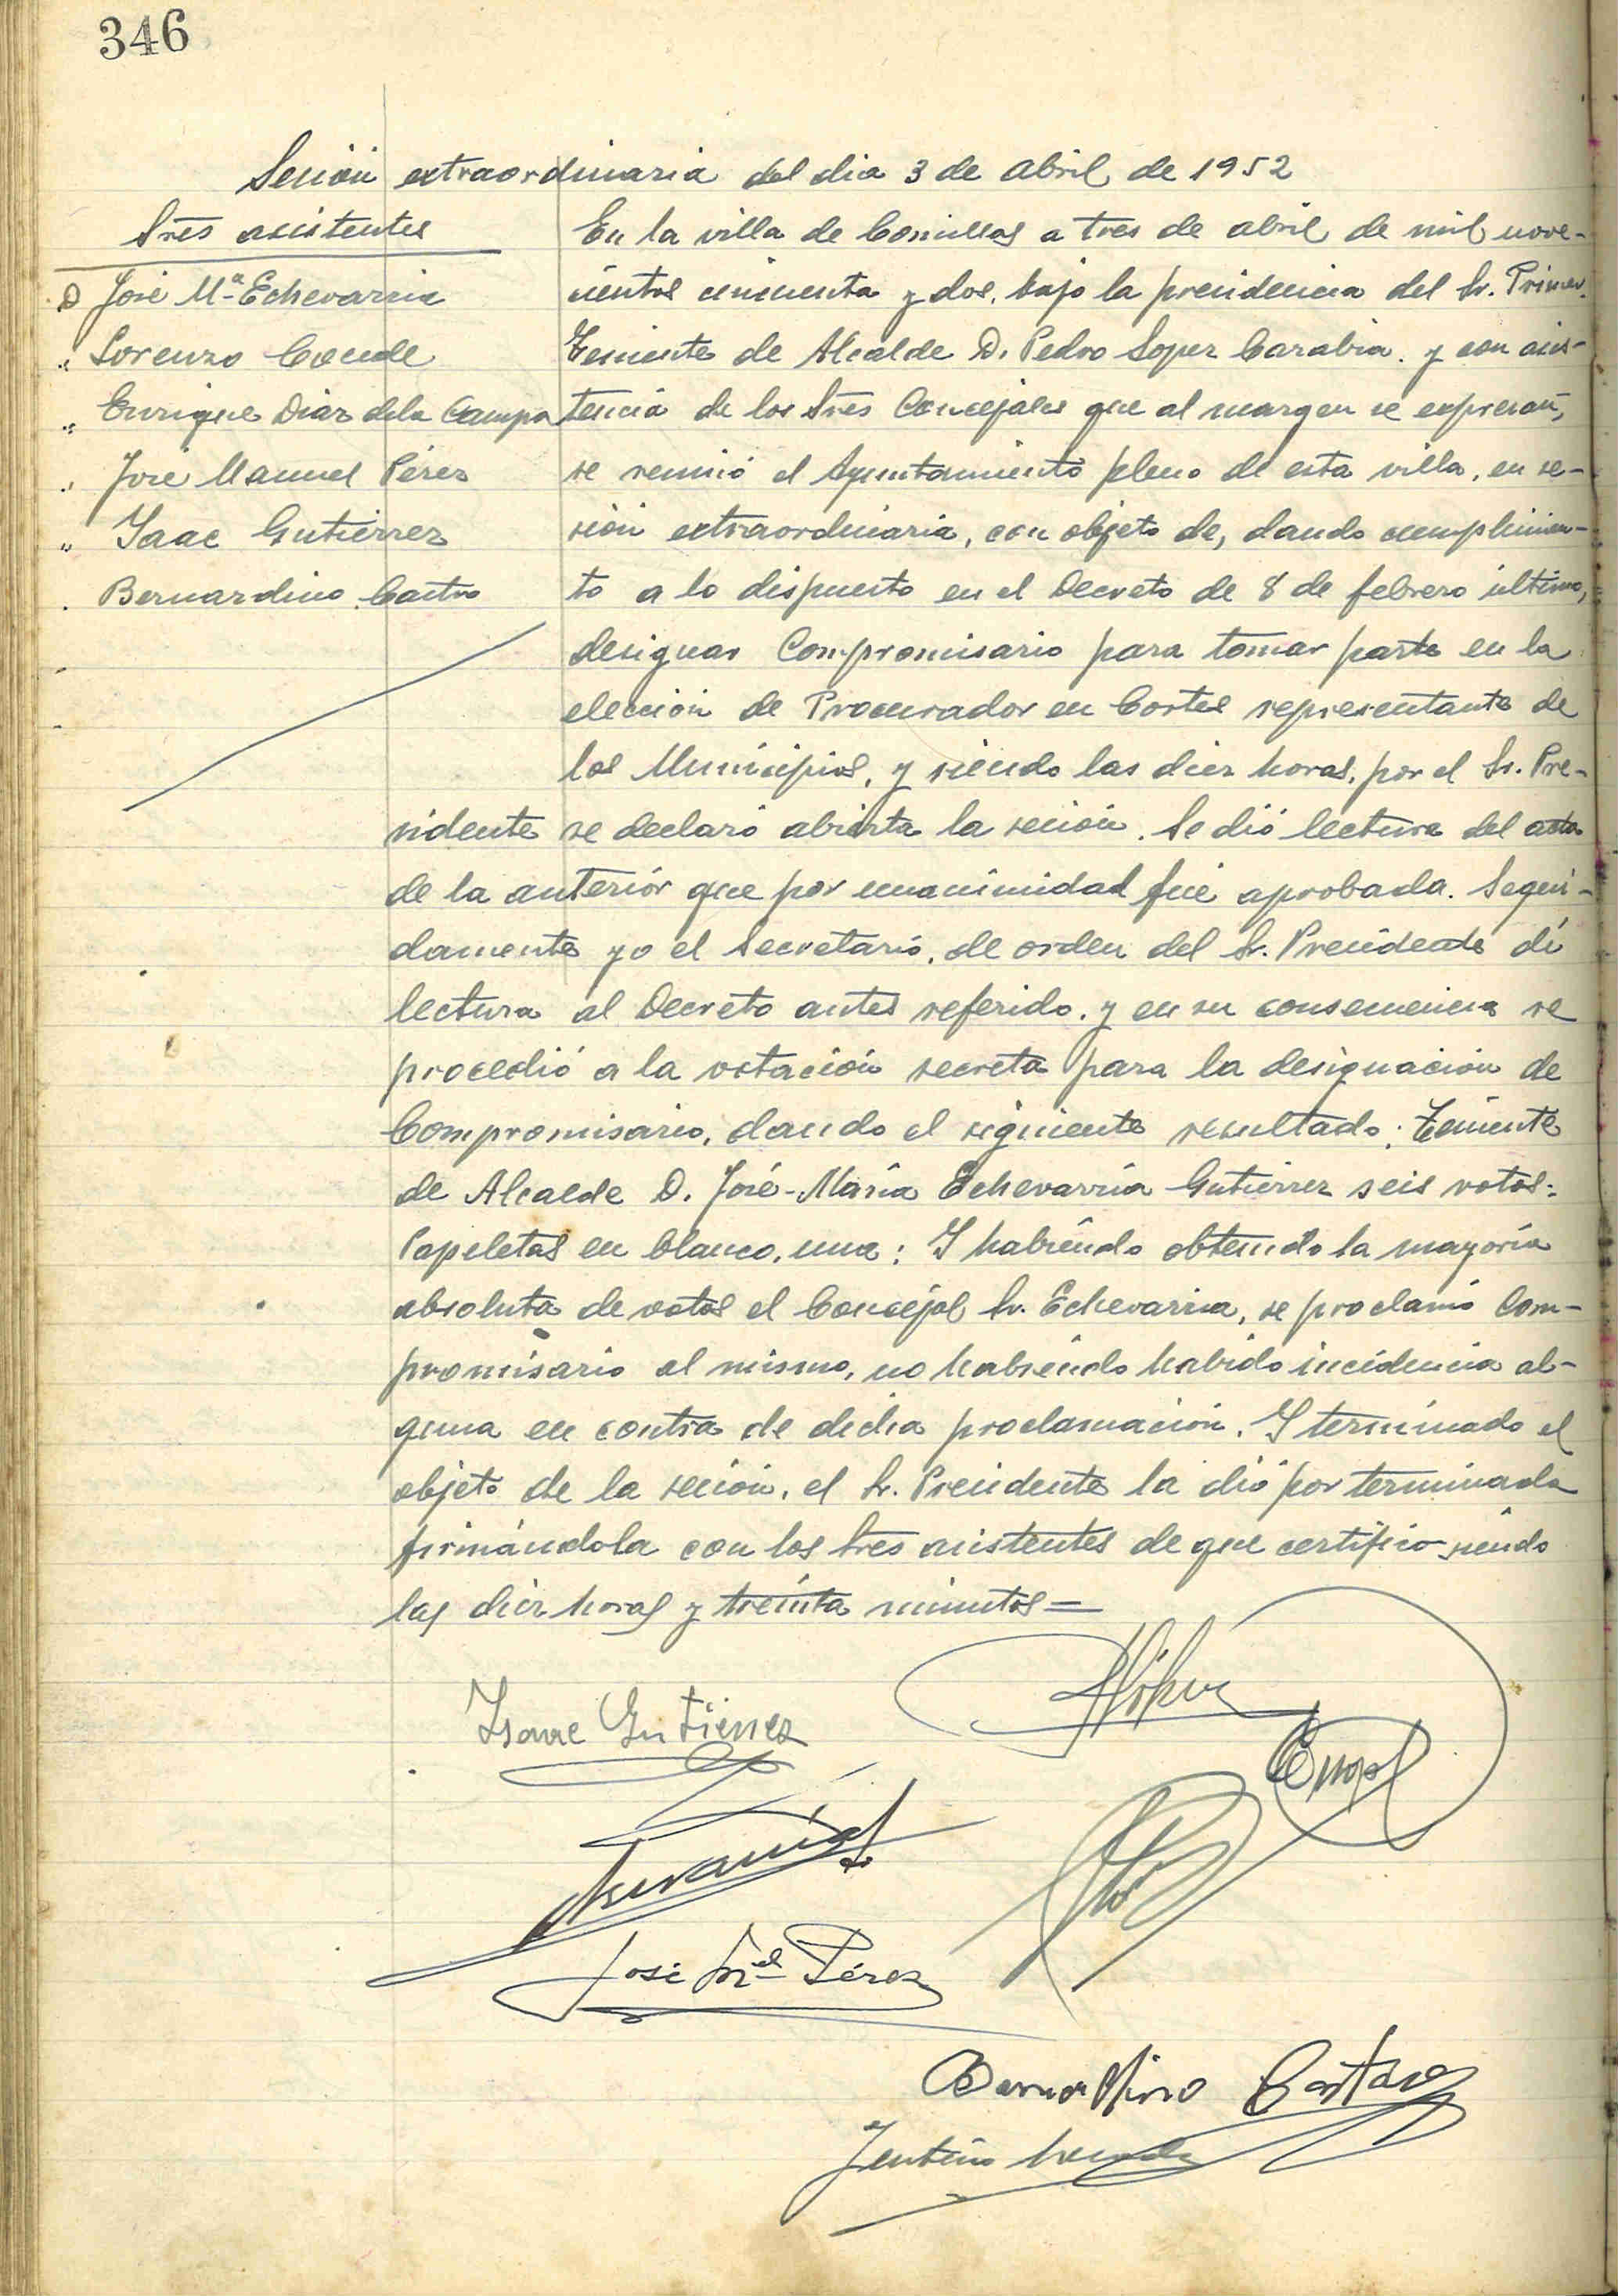 346
Sesión extraordinaria del dia 3 de Abril de 1952
Sres asistentes
D José Mª Echevarria
" Lorenzo Conde
" Enrique Diaz de la Campa
" José Manuel Pérez
" Isaac Gutierrez
. Bernardino Castro
En la villa de Comillas a tres de abril de mil nove-
cientos cincuenta y dos, bajo la presidencia del Sr. Primer
Teniente de Alcalde D. Pedro Soper Carabia. y con asis-
tencia de los Sres Concejales que al margen se expresan,
se reunió el Ayuntamiento pleno de esta villa, en se-
sión extraordinaria, con objeto de, dando cumplimien-
to a lo dispuesto en el Decreto de 8 de febrero último,
designar Compromisario para tomar parte en la
elección de Procurador en Cortes representante de
los Municipios, y siendo las diez horas, por el Sr. Pre-
sidente se declaró abierta la sesión. Se dió lectura del acta
de la anterior que por unanimidad fué aprobada. Segui-
damente yo el Secretario, de orden del Sr. Presidente dí
lectura al Decreto antes referido. y en su consecuencia se
procedió a la votación secreta para la designación de
Compromisario, dando el siguiente resultado: Teniente
de Alcalde D. José-María Echevarría Gutierrez seis votos:
Papeletas en blanco, una: Y habiendo obtenido la mayoría
absoluta de votos el Concejal Sr. Echevarria, se proclamó Com-
promisario al mismo, no habiendo habido incidencia al-
guna en contra de dicha proclamación. Y terminado el
objeto de la sesión, el Sr. Presidente la dió por terminada
firmándola con los Sres asistentes de que certifico siendo
las diez horas y treinta minutos=
Isaac Gutierrez
José Mel Pérez
Bernardino Castro